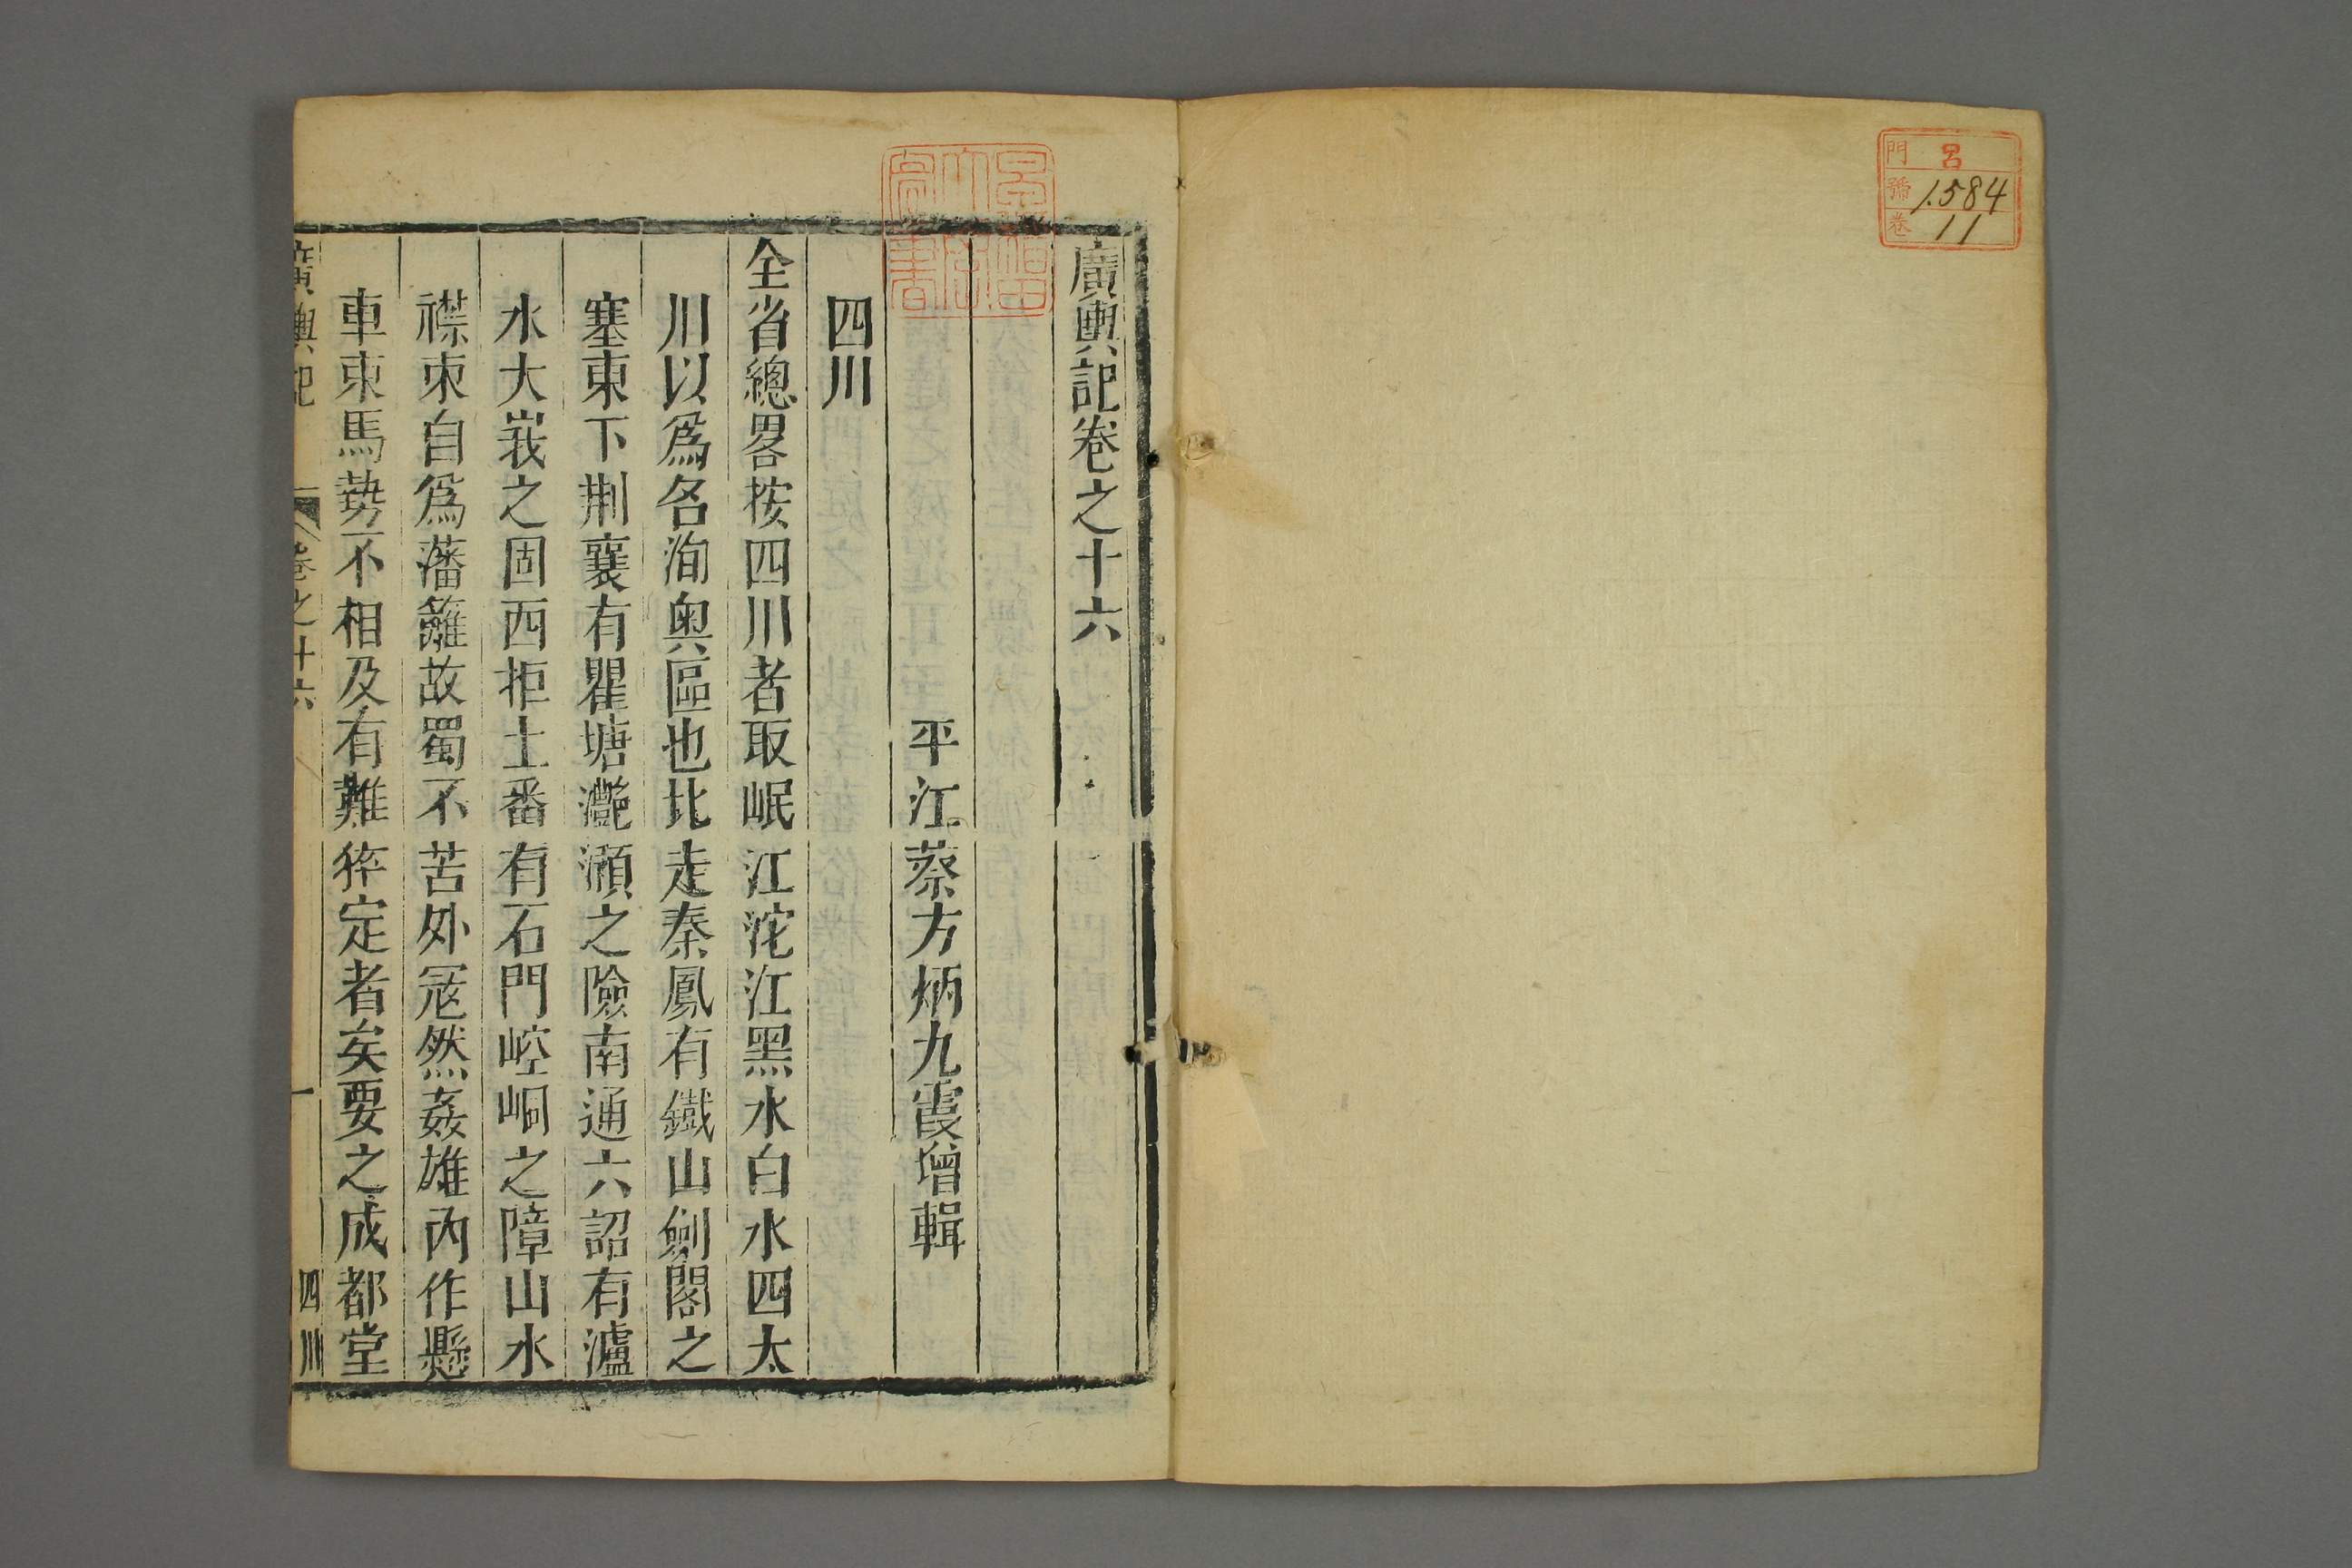 門 呂
號 1584
卷 11
廣輿記卷之十六
平江蔡方炳九霞增輯
四川
全省總畧按四川者取岷江沱江黑水白水四太
川以爲名洵奥區也北走秦鳳有鐵山劍閣之
塞東下荆襄有瞿塘灧澦之險南通六詔有瀘
水大峩之固西拒土番有石門崆峒之障山水
襟束自爲藩籬故蜀不苦外寇然姦雄内作懸
車束馬勢不相及有難猝定者矣要之成都堂
廣輿記 卷之十六 一 四川